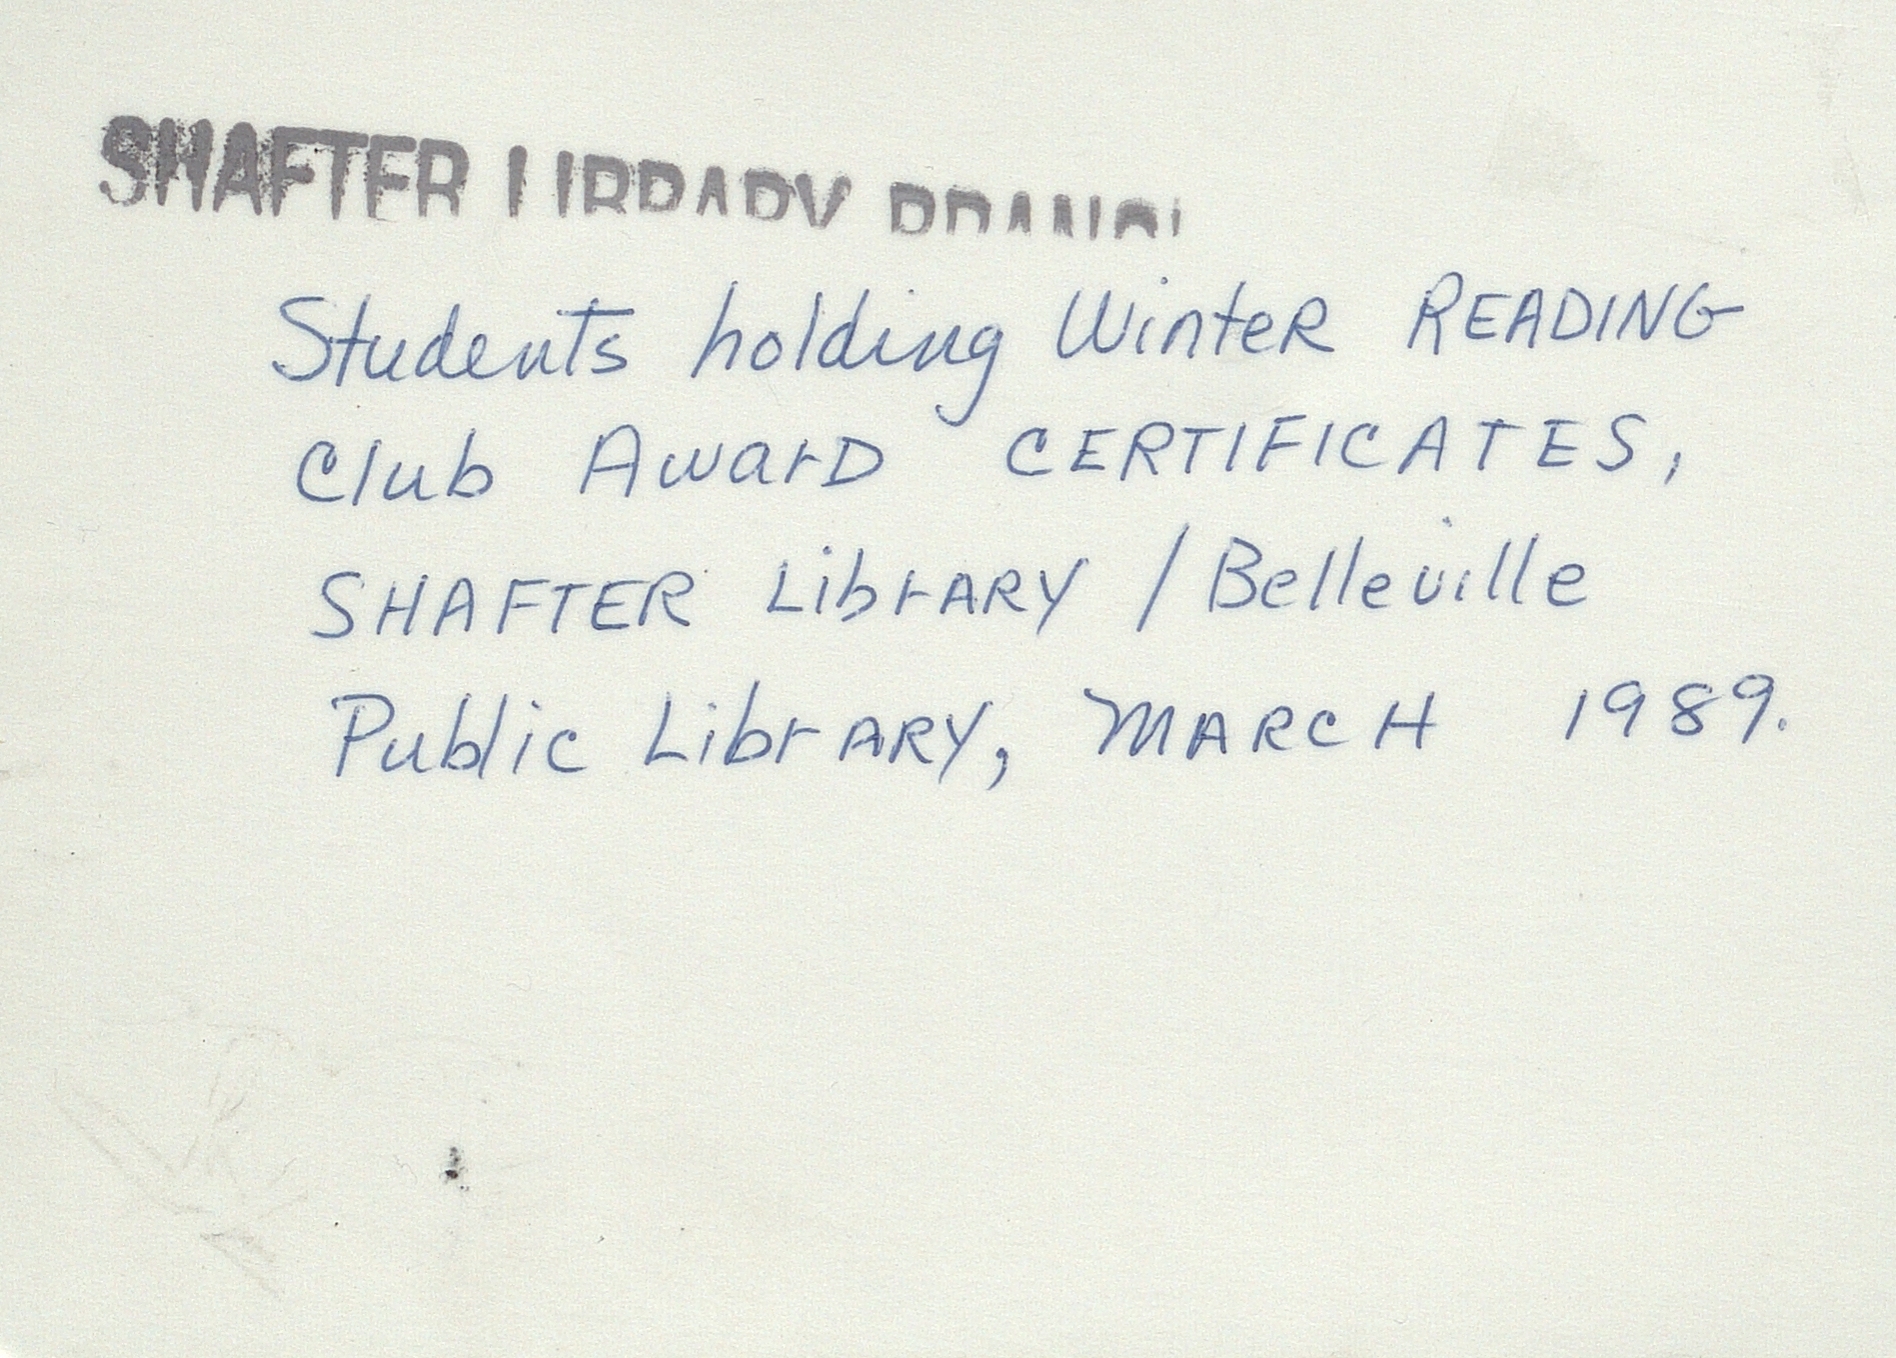 SHAFTER LIBRARY BRANCH
Students holding Winter READING
Club Award CERTIFICATES,
SHAFTER LibrARY / Belleville
Public LibrARY, MARCH 1989.